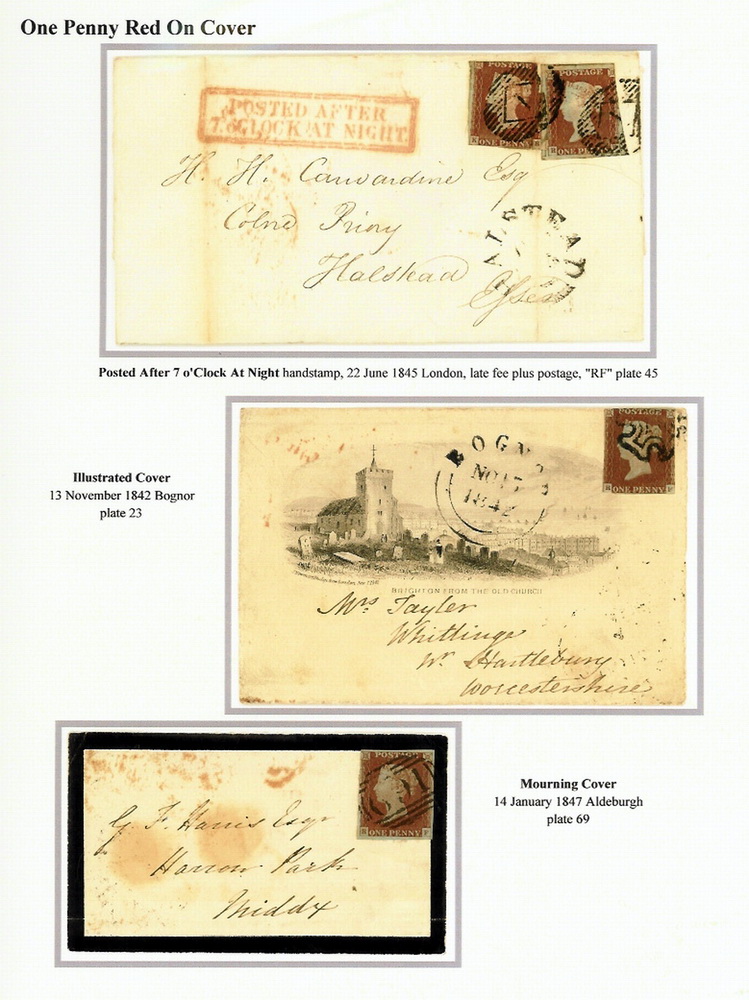 One Penny Red On Cover
POSTED AFTER
7.o'CLOCK AT NIGHT.
POSTAGE
ONE PENNY
POSTAGE
ONE PENNY
H. H. Carwardine Esq
Colne Priory
Halstead
Essex
HALSTEAD
Posted After 7 o'Clock At Night handstamp, 22 June 1845 London, late fee plus postage, "RF" plate 45
Illustrated Cover
13 November 1842 Bognor
plate 23
POSTAGE
ONE PENNY
BOGNOR
NO 13
1842
BRIGHTON FROM THE OLD CHURCH
Mrs Tayler
Whitlinge
Nr Hartlebury
Worcestershire
Mourning Cover
14 January 1847 Aldeburgh
plate 69
POSTAGE
ONE PENNY
G. F. Harris Esqr
Harrow Park
Middx